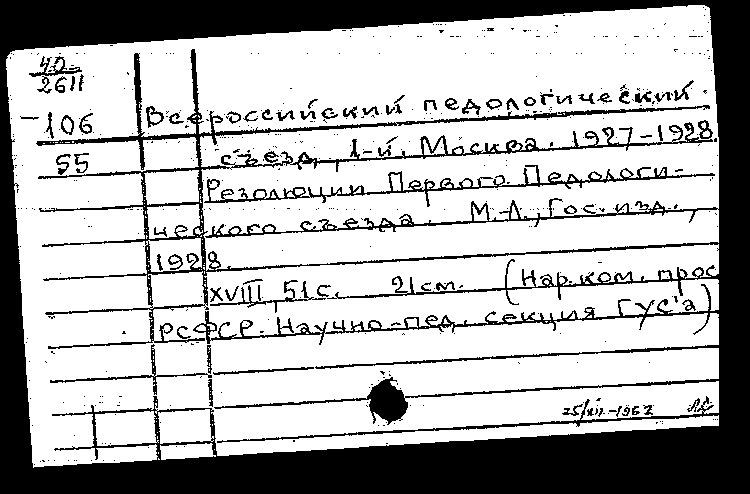 40
2611
106
55
Всероссийский педологический
съезд, 1-й. Москва. 1927-1928
Резолюции Первого Педологи-
ческого съезда. М.-Л., Гос. изд.,
1928.
XVIII, 51 с. 21 см. (Нар. ком. прос
РСФСР. Научно-пед. секция ГУС'а)
25/VII-1962